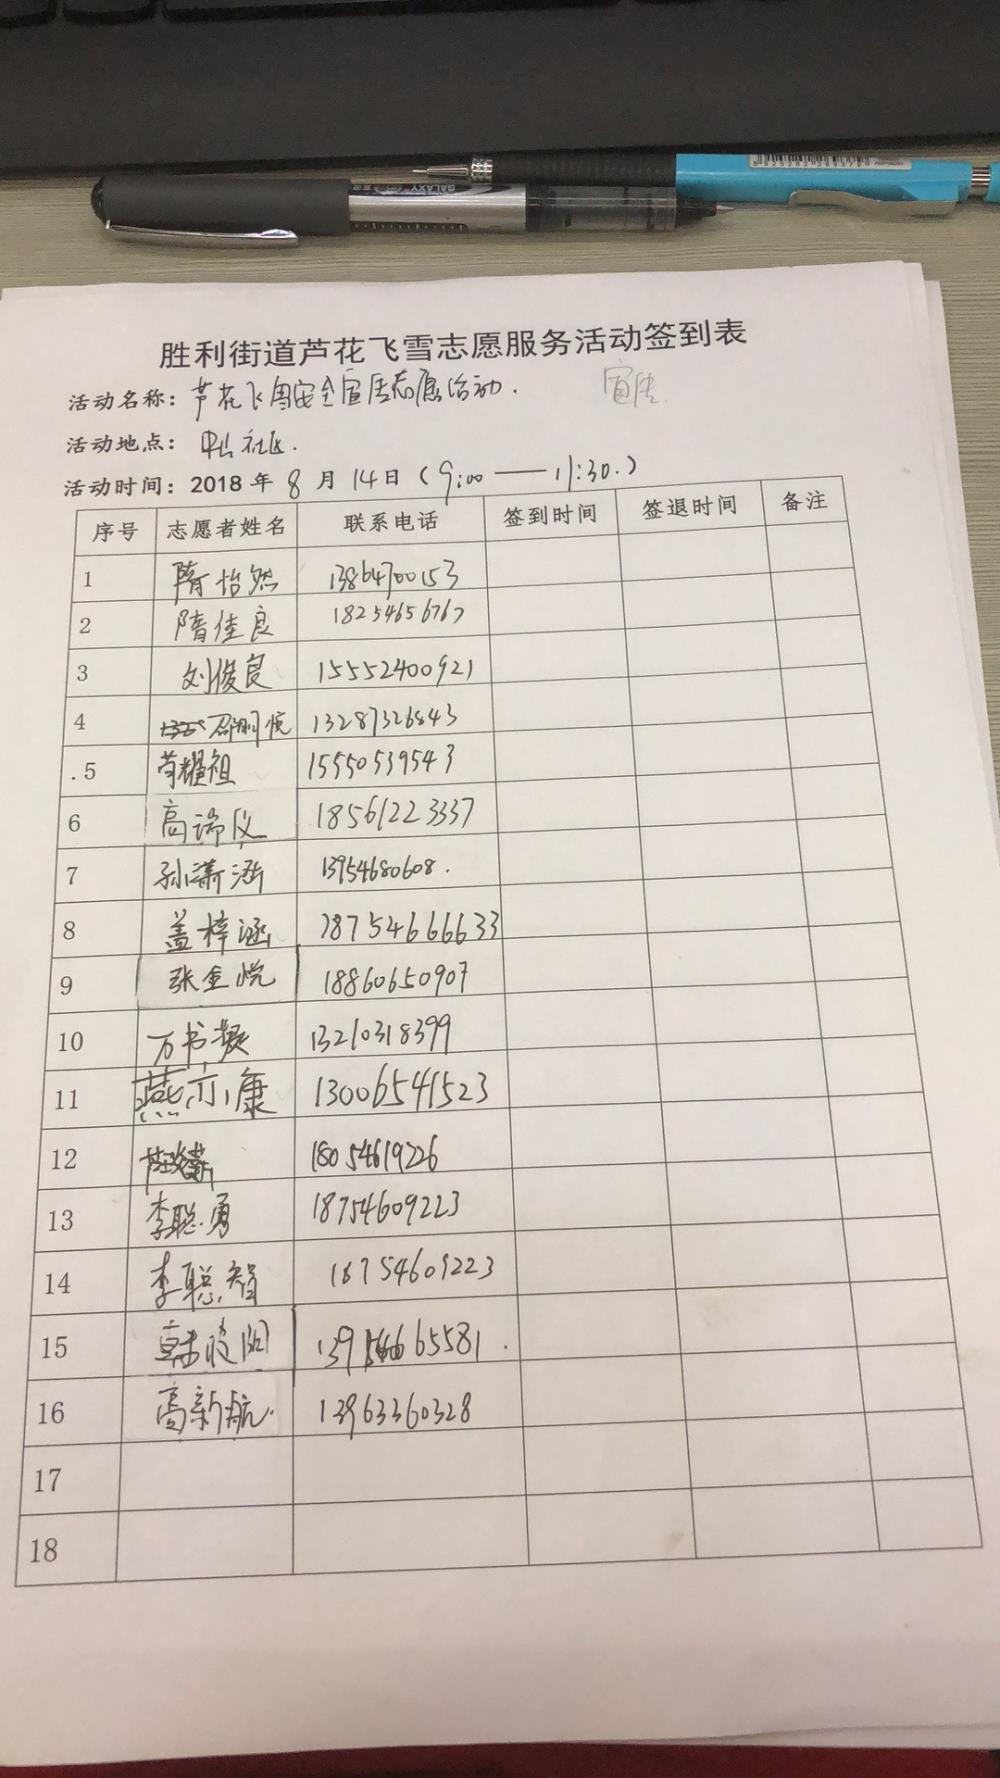 GALAXY
胜利街道芦花飞雪志愿服务活动签到表
活动名称：芦花飞雪安全宣传志愿活动. 宣传
活动地点：中山社区.
活动时间：2018年8月14日（9:00——11:30.）
序号 志愿者姓名 联系电话 签到时间 签退时间 备注
1 隋怡然 13864700153
2 隋佳良 18254656767
3 刘俊良 15552400921
4 悦 13287326843
.5 耀祖 15550539543
6 高瑞仪 18561223337
7 孙潇涵 13954680608.
8 盖梓涵 18754666633
9 张金悦 18860650907
10 万书凝 13210318399
11 燕亦康 13006541523
12 18054619226
13 李聪勇 18754609223
14 李聪智 18754609223
15 韩 阳 13954665581.
16 高新航. 13963360328
17
18